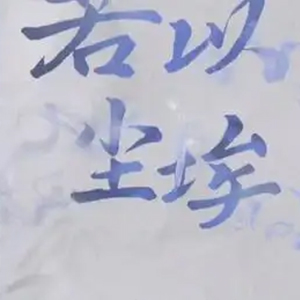 若以
尘埃